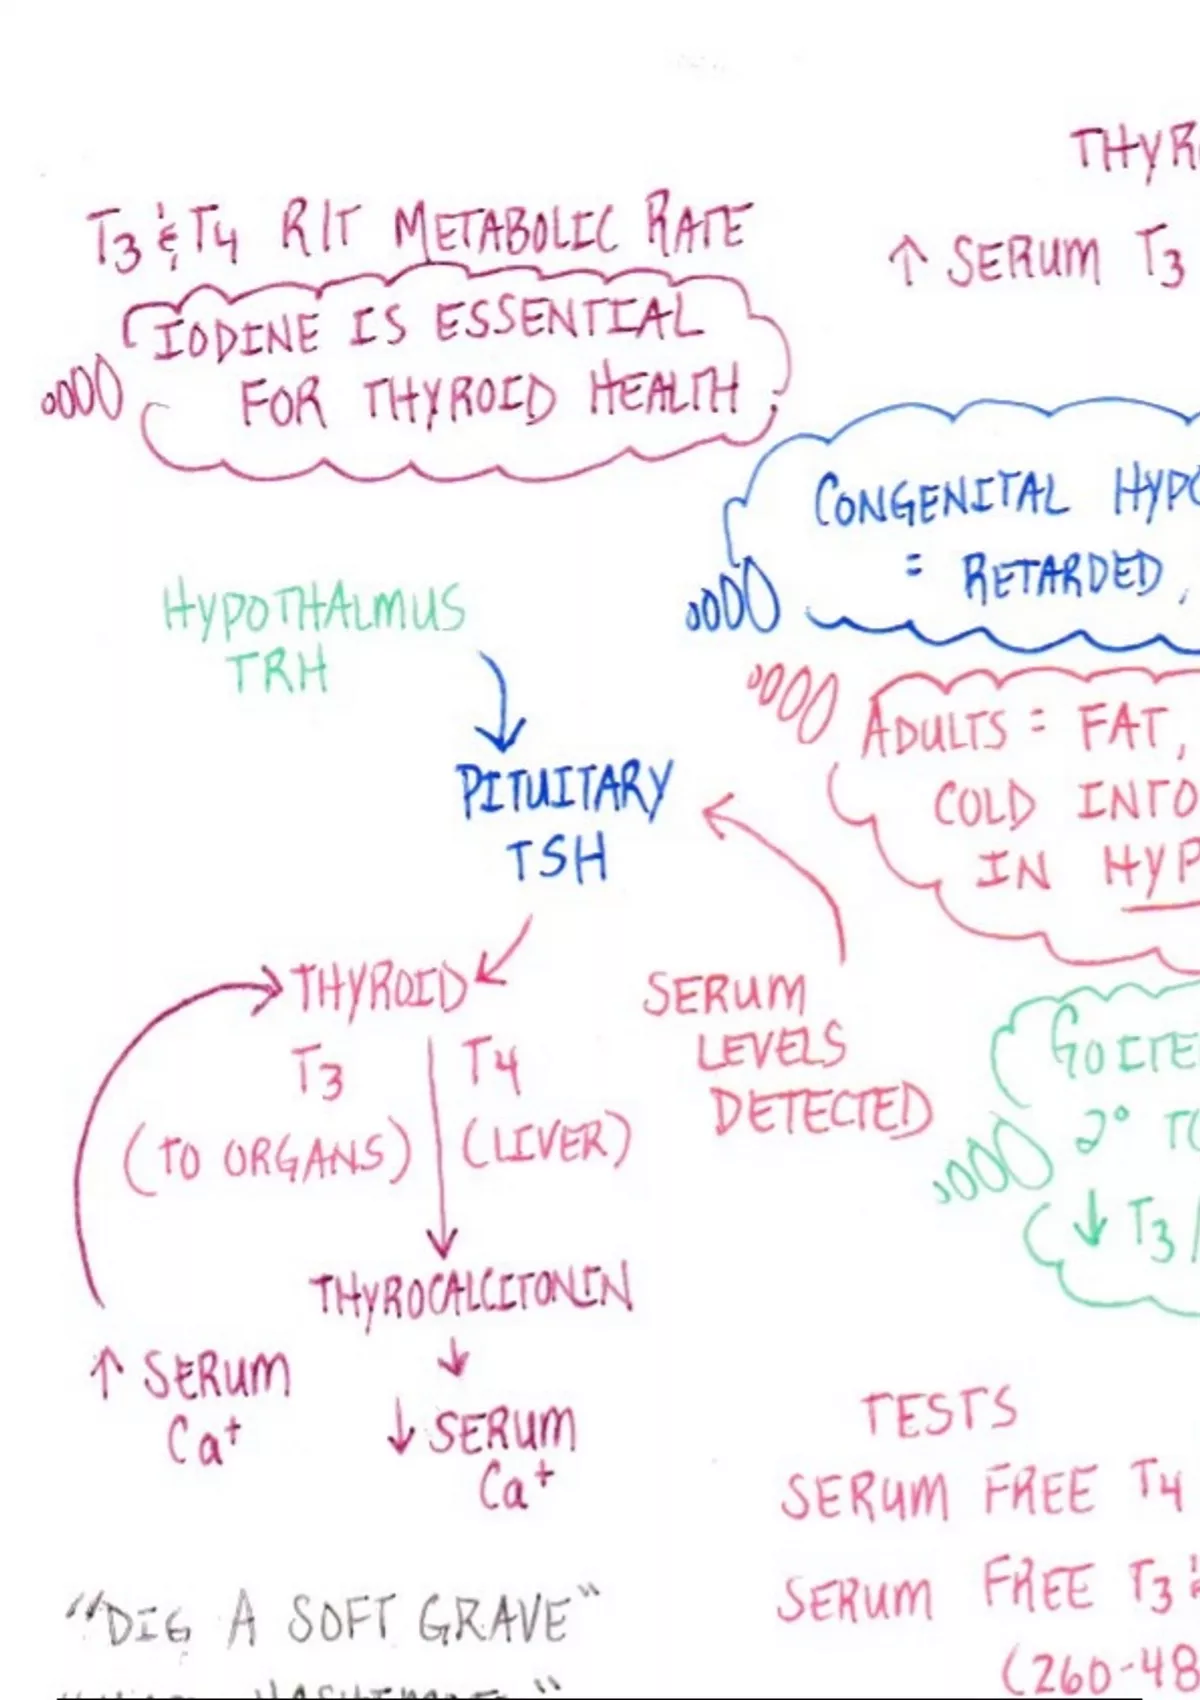 THYR
T3 & T4 R/T METABOLIC RATE
↑ SERUM T3
IODINE IS ESSENTIAL
FOR THYROID HEALTH
CONGENITAL HYPO
= RETARDED,
HYPOTHALMUS
TRH
ADULTS = FAT,
COLD INTO
IN HYP
PITUITARY
TSH
THYROID
T3 T4
(TO ORGANS) (LIVER)
SERUM
LEVELS
DETECTED
GOITE
2° TO
↓ T3/
THYROCALCITONIN
↓
↑ SERUM
Ca+
↓ SERUM
Ca+
TESTS
SERUM FREE T4
SERUM FREE T3 &
(260-48
"DIG A SOFT GRAVE"